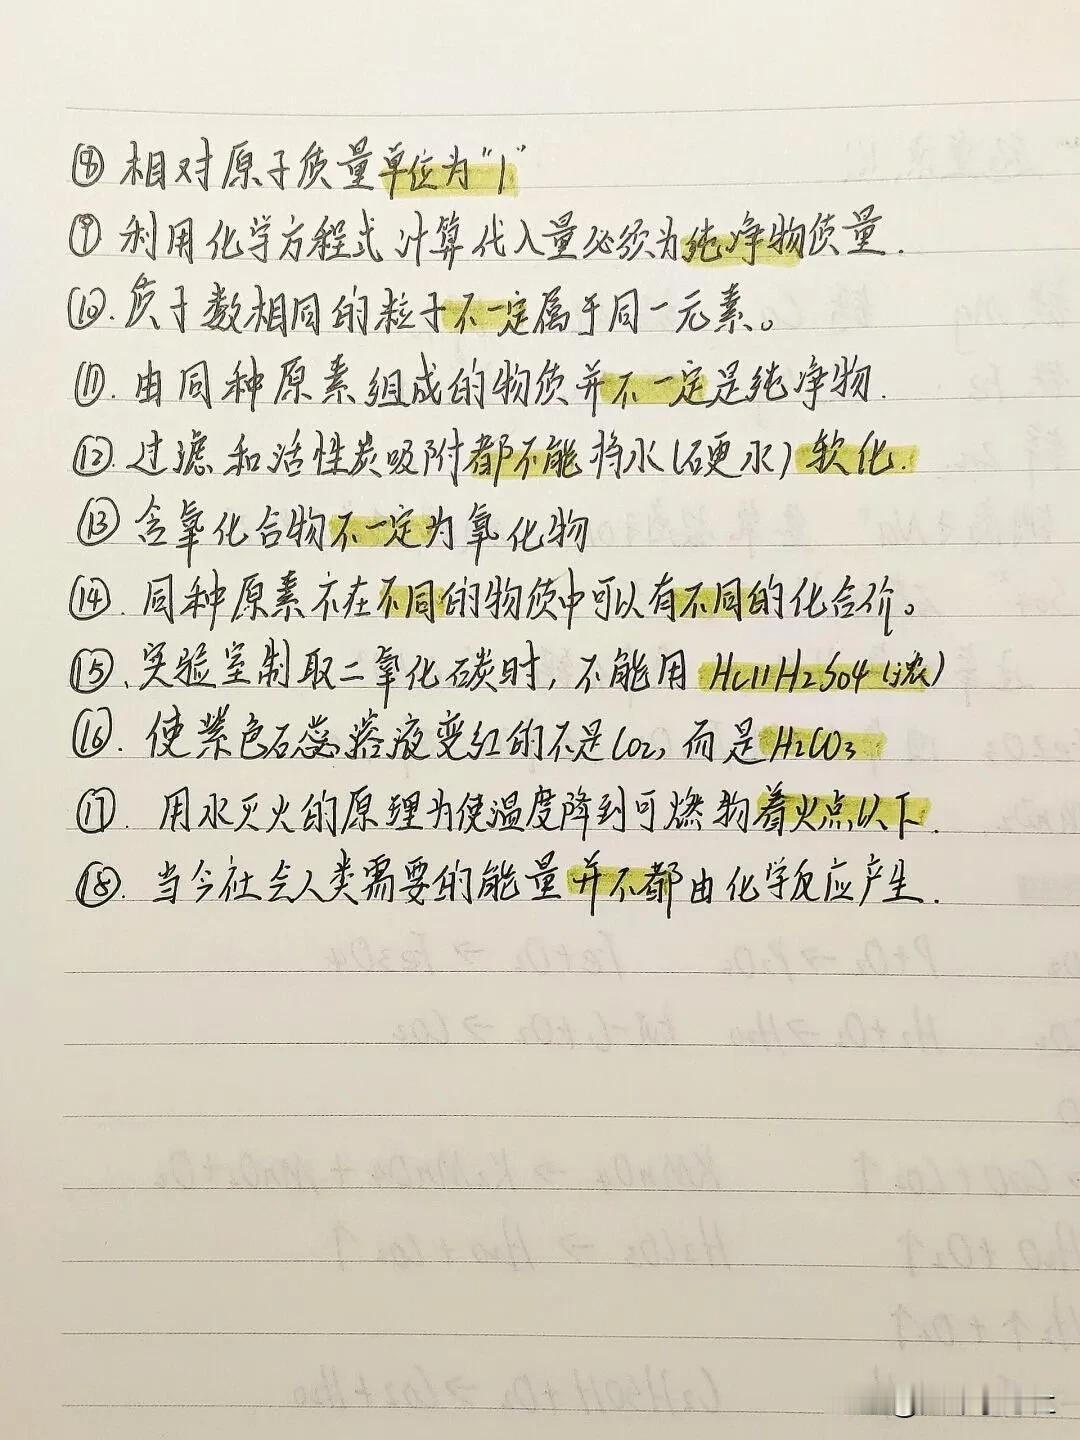 ⑧ 相对原子质量单位为"1"
⑨ 利用化学方程式计算代入量必须为纯净物质量.
⑩. 质子数相同的粒子不一定属于同一元素。
⑪. 由同种原素组成的物质并不一定是纯净物.
⑫. 过滤和活性炭吸附都不能将水(硬水)软化.
⑬ 含氧化合物不一定为氧化物
⑭. 同种原素在不同的物质中可以有不同的化合价。
⑮. 实验室制取二氧化碳时, 不能用 HCl H2SO4 (浓)
⑯. 使紫色石蕊溶液变红的不是CO2, 而是H2CO3
⑰. 用水灭火的原理为使温度降到可燃物着火点以下.
⑱. 当今社会人类需要的能量并不都由化学反应产生.